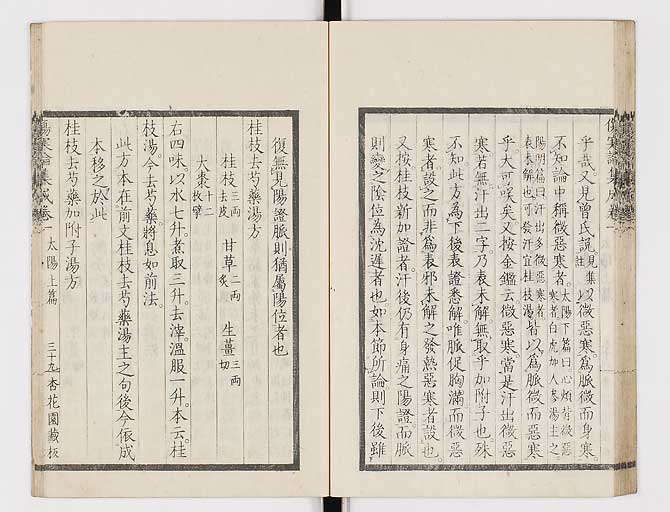 乎哉。又見曾氏説見集註以微惡寒。爲脈微而身寒。
不知論中稱微惡寒者。太陽下篇曰心煩背微惡寒者白虎加人參湯主之
陽明篇曰汗出多微惡寒者表未解也可發汗宜桂枝湯皆以爲脈微而惡寒
乎大可咲矣又按金鑑云微惡寒當是汗出微惡
寒若無汗出二字乃表未解無取乎加附子也殊
不知此方爲下後表證悉解。唯脈促胸滿而微惡
寒者。設之。而非爲表邪未解之發熱惡寒者設也。
又按桂枝新加證者。汗後仍有身痛之陽證而脈
則變之陰位爲沈遲者也如本節所論則下後雖
傷寒論集成卷一
復無見陽證脈則猶屬陽位者也
桂枝去芍藥湯方
桂枝三両去皮 甘草二両炙 生薑三両切
大棗十二枚擘
右四味。以水七升。煮取三升。去滓。溫服一升。本云。桂
枝湯。今去芍藥。將息如前法。
此方本在前文桂枝去芍藥湯主之句後今依成
本移之於此
桂枝去芍藥加附子湯方
傷寒論集成卷一 太陽上篇 三十九 杏花園藏板